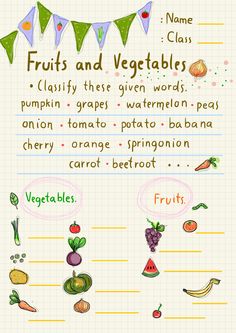 : Name
: Class
Fruits and Vegetables
• Classify these given words.
pumpkin • grapes • watermelon • peas
onion • tomato • potato • babana
cherry • orange • springonion
carrot • beetroot • • • •
Vegetables.
Fruits.